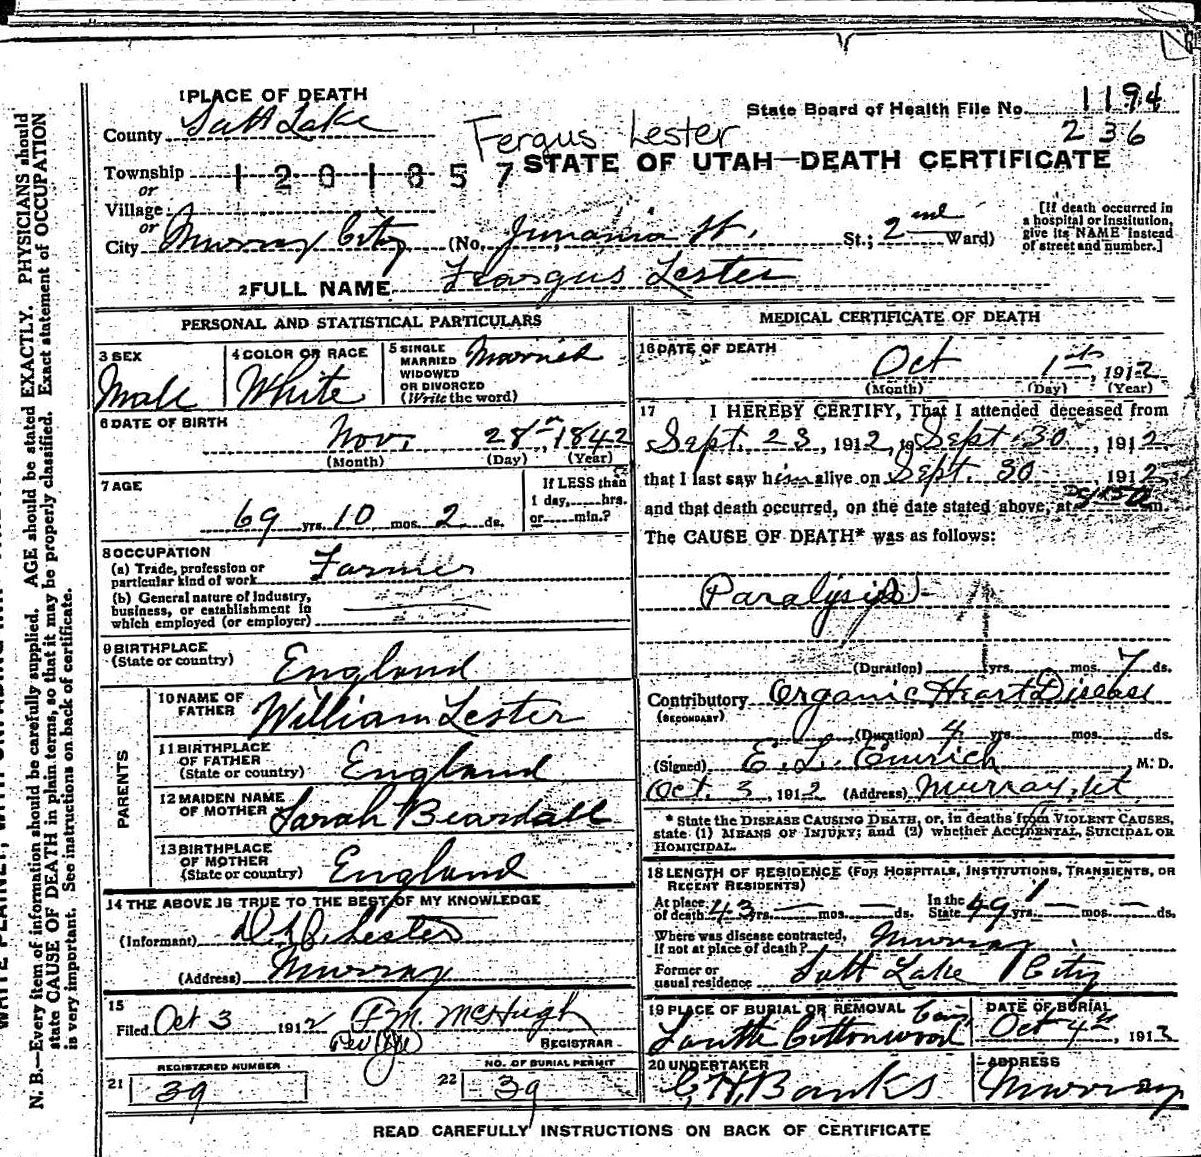 1 PLACE OF DEATH
State Board of Health File No. 1194
County Salt Lake
236
Fergus Lester
Township 1201857
STATE OF UTAH—DEATH CERTIFICATE
or
Village
or
City Murray City (No. St.; 2nd Ward)
[If death occurred in
a hospital or institution,
give its NAME instead
of street and number.]
2 FULL NAME Feargus Lester
PERSONAL AND STATISTICAL PARTICULARS
3 SEX
Male
4 COLOR OR RACE
White
5 SINGLE
MARRIED
WIDOWED
OR DIVORCED
(Write the word)
Married
6 DATE OF BIRTH
Nov. 28th 1842
(Month) (Day) (Year)
7 AGE
69 yrs. 10 mos. 2 ds.
If LESS than
1 day, hrs.
or min.?
8 OCCUPATION
(a) Trade, profession or
particular kind of work Farmer
(b) General nature of Industry,
business, or establishment in
which employed (or employer)
9 BIRTHPLACE
(State or country) England
PARENTS
10 NAME OF
FATHER William Lester
11 BIRTHPLACE
OF FATHER
(State or country) England
12 MAIDEN NAME
OF MOTHER Sarah Beardall
13 BIRTHPLACE
OF MOTHER
(State or country) England
14 THE ABOVE IS TRUE TO THE BEST OF MY KNOWLEDGE
(Informant) Lester
(Address) Murray
15
Filed Oct 3 1912 McHugh
REGISTRAR
REGISTERED NUMBER
21 39
NO. OF BURIAL PERMIT
22 39
MEDICAL CERTIFICATE OF DEATH
16 DATE OF DEATH
Oct 1st, 1912
(Month) (Day) (Year)
17 I HEREBY CERTIFY, That I attended deceased from
Sept. 23, 1912, to Sept 30, 1912
that I last saw him alive on Sept. 30 1912
and that death occurred, on the date stated above, at m.
The CAUSE OF DEATH* was as follows:
Paralysis
(Duration) yrs. mos. 7 ds.
Contributory Organic Heart Disease
(SECONDARY)
(Duration) 4 yrs. mos. ds.
(Signed) E. L. Emrich M. D.
Oct. 3, 1912 (Address) Murray, Ut
* State the DISEASE CAUSING DEATH, or, in deaths from VIOLENT CAUSES,
state (1) MEANS OF INJURY; and (2) whether ACCIDENTAL, SUICIDAL OR
HOMICIDAL.
18 LENGTH OF RESIDENCE (FOR HOSPITALS, INSTITUTIONS, TRANSIENTS, OR
RECENT RESIDENTS)
At place
of death 43 yrs. — mos. — ds.
In the
State 49 yrs. — mos. — ds.
Where was disease contracted,
If not at place of death? Murray
Former or
usual residence Salt Lake City
19 PLACE OF BURIAL OR REMOVAL
South Cottonwood
DATE OF BURIAL
Oct 4th, 1912
20 UNDERTAKER
C. H. Banks
ADDRESS
Murray
READ CAREFULLY INSTRUCTIONS ON BACK OF CERTIFICATE
N. B.—Every item of information should be carefully supplied. AGE should be stated EXACTLY. PHYSICIANS should
state CAUSE OF DEATH in plain terms, so that it may be properly classified. Exact statement of OCCUPATION
is very important. See instructions on back of certificate.